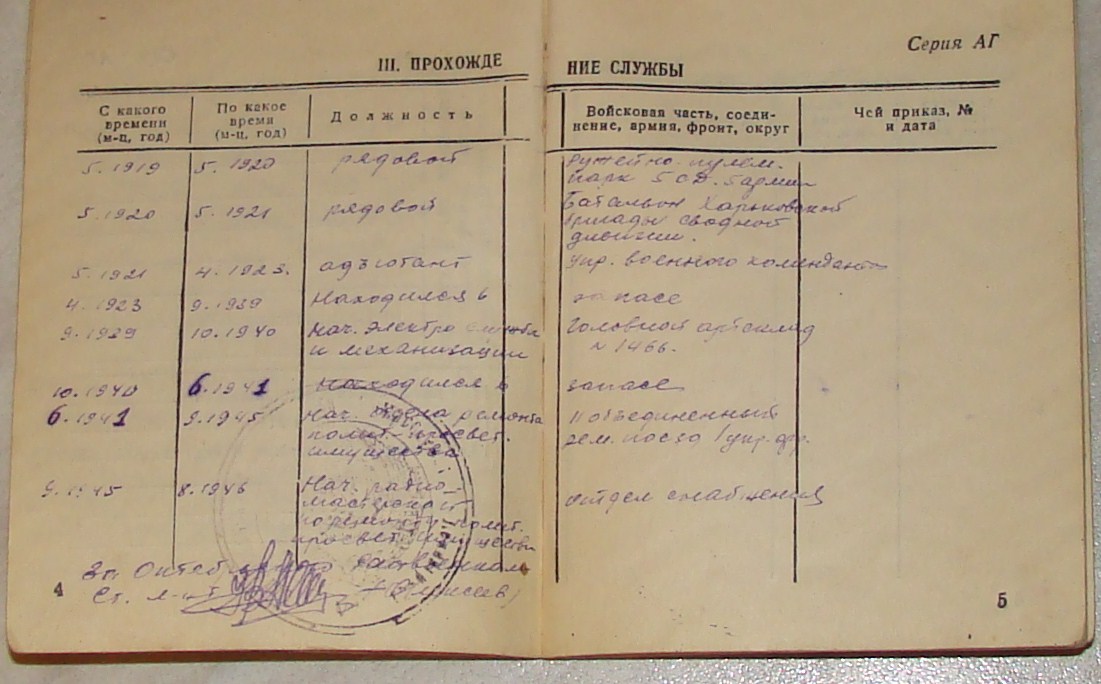 Серия АГ
III. ПРОХОЖДЕНИЕ СЛУЖБЫ
С какого времени (м-ц, год)
По какое время (м-ц, год)
Должность
Войсковая часть, соеди-
нение, армия, фронт, округ
Чей приказ, №
и дата
5.1919 5.1920 рядовой Ружейно-пулем.
парк 5 СД. 5 армии
5.1920 5.1921 рядовой Батальон Харьковской
бригады сводной
дивизии.
5.1921 4.1923. адъютант Упр. военного коменданта
4.1923 9.1939 Находился в запасе
9.1939 10.1940 Нач. электро службы Головной артсклад
и механизации № 1466.
10.1940 6.1941 Находился в запасе
6.1941 9.1945 Нач. отдела ремонта объединенный
полит. просвет. рем. поезд упр.
имущества
9.1945 8.1946 Нач. радио- отдел снабжения
мастерской
по ремонту полит.
просвет. имущества
Ст. л-нт
4
5